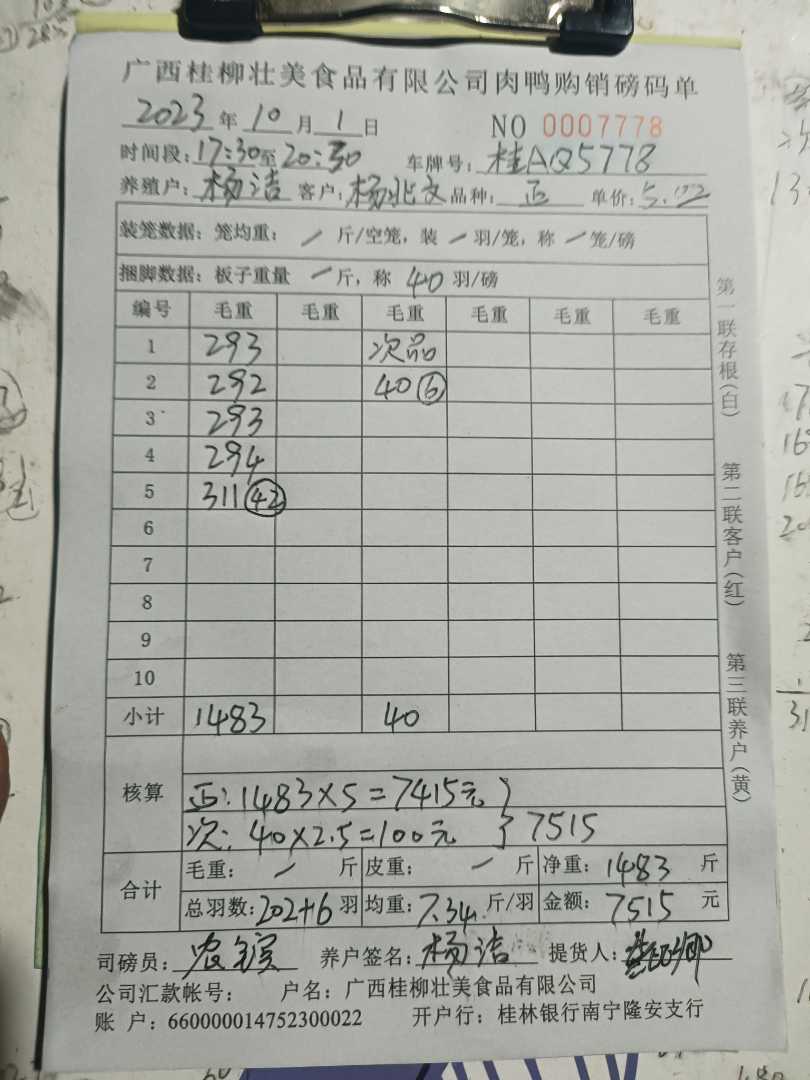 广西桂柳壮美食品有限公司肉鸭购销磅码单
2023年10月1日 NO 0007778
时间段:17:30至20:30 车牌号:桂AQ5778
养殖户:杨洁 客户:杨兆文 品种:正 单价:5.00
装笼数据:笼均重: / 斤/空笼,装 / 羽/笼,称 / 笼/磅
捆脚数据:板子重量 / 斤,称 40 羽/磅
编号 毛重 毛重 毛重 毛重 毛重 毛重
1 293 次品
2 292 40⑥
3 293
4 294
5 311㊷
6
7
8
9
10
小计 1483 40
核算
正:1483×5=7415元 }
次:40×2.5=100元 } 7515
合计
毛重: / 斤 皮重: / 斤 净重:1483 斤
总羽数:202+6 羽 均重:7.34 斤/羽 金额:7515 元
司磅员:农 养户签名:杨洁 提货人:
公司汇款帐号: 户名:广西桂柳壮美食品有限公司
账 户:660000014752300022 开户行:桂林银行南宁隆安支行
第一联存根(白)
第二联客户(红)
第三联养户(黄)